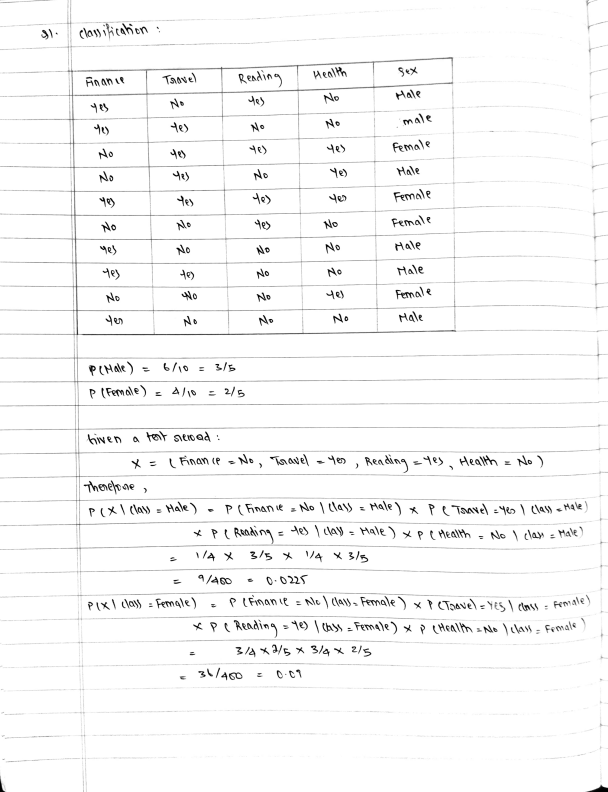 Q1. Classification :
Finance Travel Reading Health Sex
Yes No Yes No Male
Yes Yes No No male
No Yes Yes Yes Female
No Yes No Yes Male
Yes Yes Yes Yes Female
No No Yes No Female
Yes No No No Male
Yes Yes No No Male
No No No Yes Female
Yes No No No Male
P(Male) = 6/10 = 3/5
P(Female) = 4/10 = 2/5
Given a test record :
X = (Finance = No, Travel = Yes, Reading = Yes, Health = No)
Therefore,
P(X | class = Male) = P(Finance = No | class = Male) × P(Travel = Yes | class = Male)
× P(Reading = Yes | class = Male) × P(Health = No | class = Male)
= 1/4 × 3/5 × 1/4 × 3/5
= 9/400 = 0.0225
P(X | class = Female) = P(Finance = No | class = Female) × P(Travel = Yes | class = Female)
× P(Reading = Yes | class = Female) × P(Health = No | class = Female)
= 3/4 × 2/5 × 3/4 × 2/5
= 36/400 = 0.09